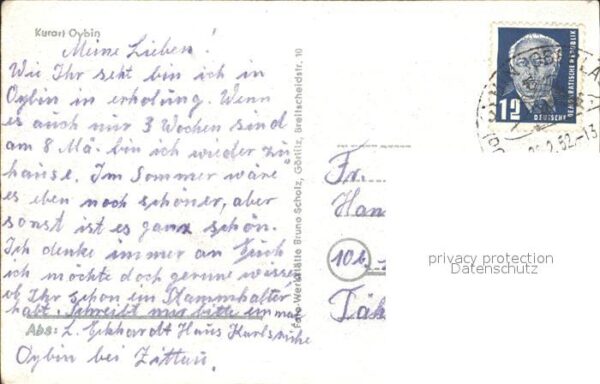 Kurort Oybin
Meine Lieben!
Wie Ihr seht bin ich in
Oybin in erholung. Wenn
es auch nur 3 Wochen sind
am 8 Mä. bin ich wieder zu
hause. Im Sommer wäre
es eben noch schöner, aber
sonst ist es ganz schön.
Ich denke immer an Euch
ich möchte doch gerne wissen
ob Ihr schon ein Stammhalter
habt. Schreibt mir bitte einmal
Abs: L. Eckhardt Haus Karlsruhe
Oybin bei Zittau.
Foto Werkstätte Bruno Scholz, Görlitz, Breitscheidstr. 10
12
DEUTSCHE
DEMOKRATISCHE REPUBLIK
2.52-13
Fr.
Han
10b
privacy protection
Datenschutz